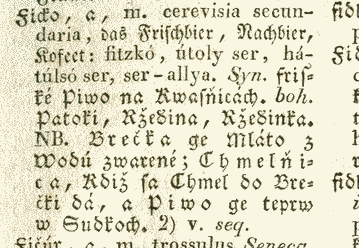 Ficko, a, m. cerevisia secun-
daria, das Frischbier, Nachbier,
Kofect: fitzkó, útoly ser, há-
túlsó ser, ser-allya. Syn. fris-
ké Piwo na Kwasňicách. boh.
Patoki, Ržedina, Ržedinka.
NB. Brečka ge Mláto z
Wodú zwarené; Chmelňi-
ca, Kdiž sa Chmel do Bre-
čki dá, a Piwo ge teprw
w Sudkoch. 2) v. seq.
Fičúr, a, m. trossulus Seneca